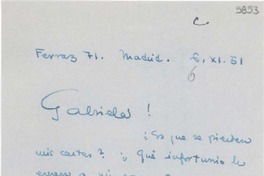 5853
c
Ferraz 71. Madrid. 6. XI. 51
6
Gabriela!
¿Es que se pierden
mis cartas? ¡Qué infortunio le